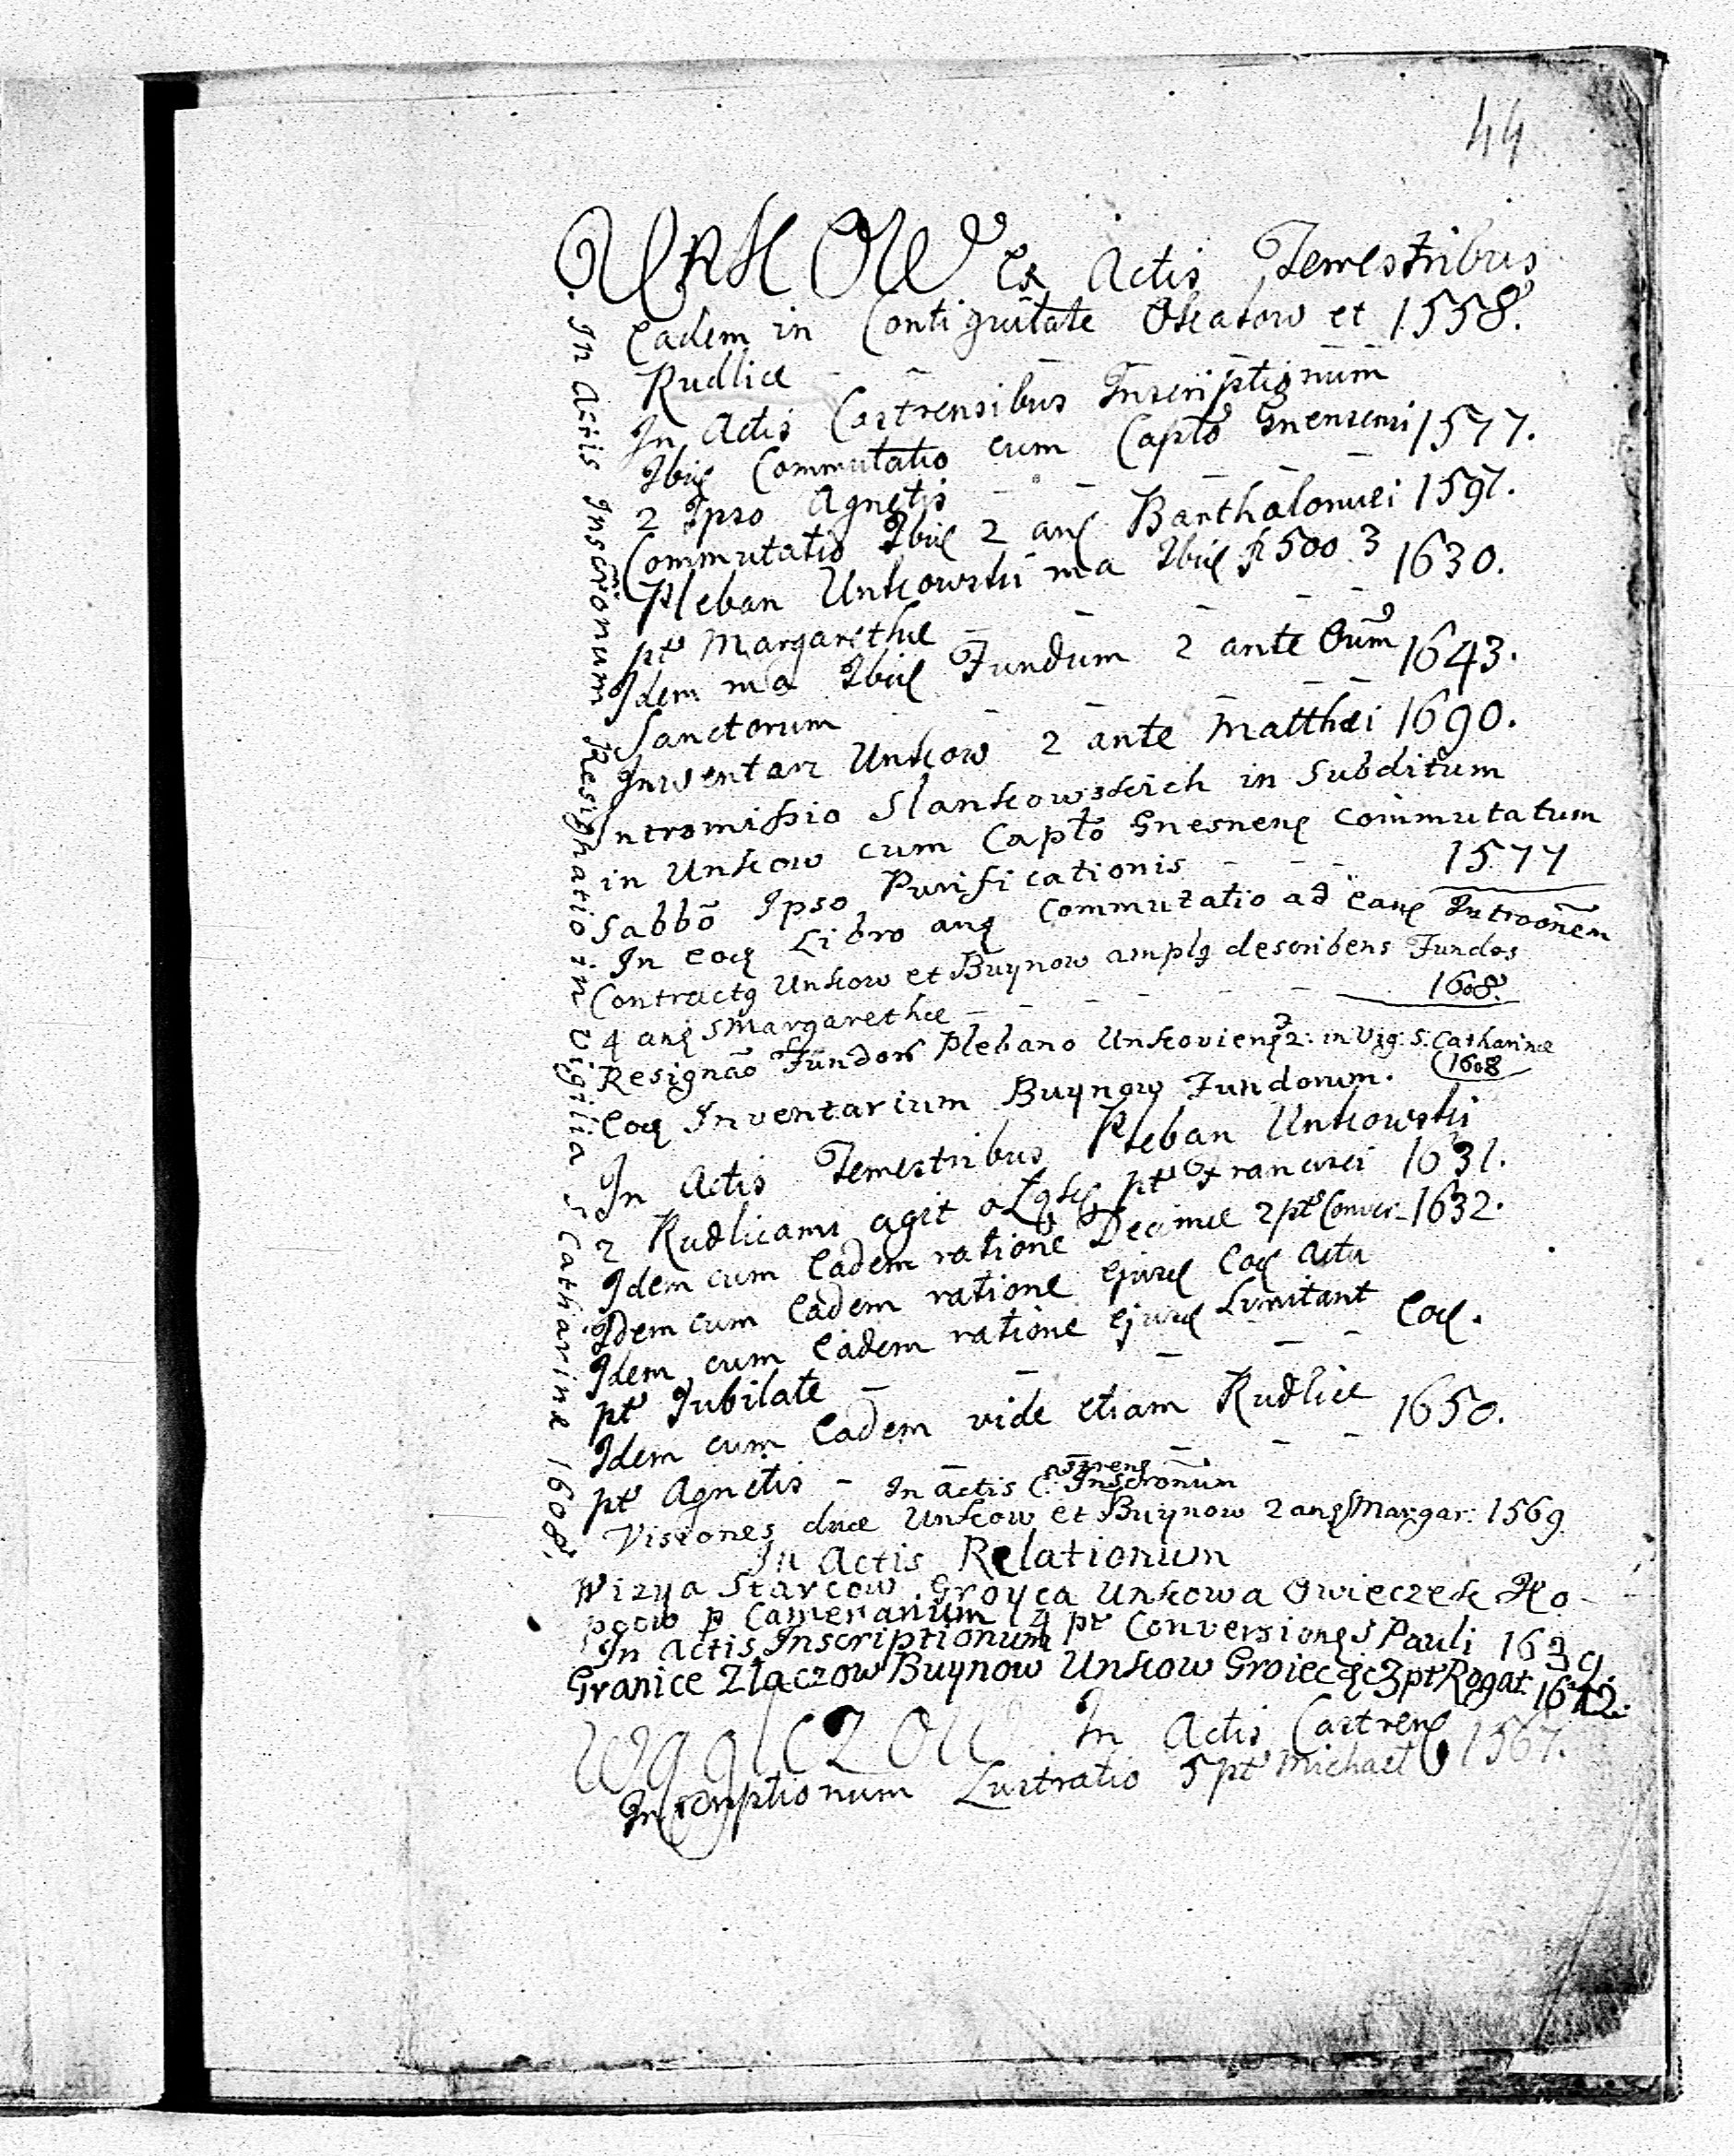 44
UNKOW Ex Actis Terrestribus
Eadem in Contiguitate Okatow et 1558.
Rudlice
In Actis Castrensibus Inscriptionum
Ibid Commutatio cum Capto Gnensensi 1577.
2 Ipso Agnetis
Commutatio Ibid 2 anq Bartholomei 1597.
Pleban Unkowski ma Ibid fl 500 3 1630.
pt Margarethe
Idem ma Ibid Fundum 2 ante Oum 1643.
Sanctorum
Inwentarz Unkow 2 ante Matthei 1690.
Intromissio Slankowskich in Subditum
in Unkow cum Capto Gnesnenq commutatum
Sabbo Ipso Purificationis 1577
In eoq Libro anq Commutatio ad eanq Introonem
Contractq Unkow et Buynow amplq describens Fundos
4 anq S Margarethæ 1608.
Resignao Fundor Plebano Unkovienq 2: in Vig: S. Catharinæ
1608
Eoq Inventarium Buynow Fundorum.
In Actis Terrestribus Pleban Unkowski
2 Rudlicami agit o pt Francisci 1631.
Idem cum Eadem ratione Decimæ 2 pt Conver 1632.
Idem cum Eadem ratione ejusq Eoq Actu
Idem cum Eadem ratione ejusq Luvitant Eoq.
pt Jubilate
Idem cum Eadem vide etiam Rudlice 1650.
pt Agnetis In Actis C. Inscronum
Visiones duæ Unkow et Buynow 2 anq S Margar: 1569
In Actis Relationum
Wizya Starcow Groyca Unkowa Owieczek Ko-
pcow p Camerarium 4 pt Conversionq S Pauli 1639.
In Actis Inscriptionum
Granice Zlaczow Buynow Unkow Groiec 3 pt Rogat 1642.
Waglczow In Actis Castrenq 1567.
Inscriptionum Lustratio 5 pt Michael
In Actis Inscrionum Resignatio in Vigilia S Catharinæ 1608.